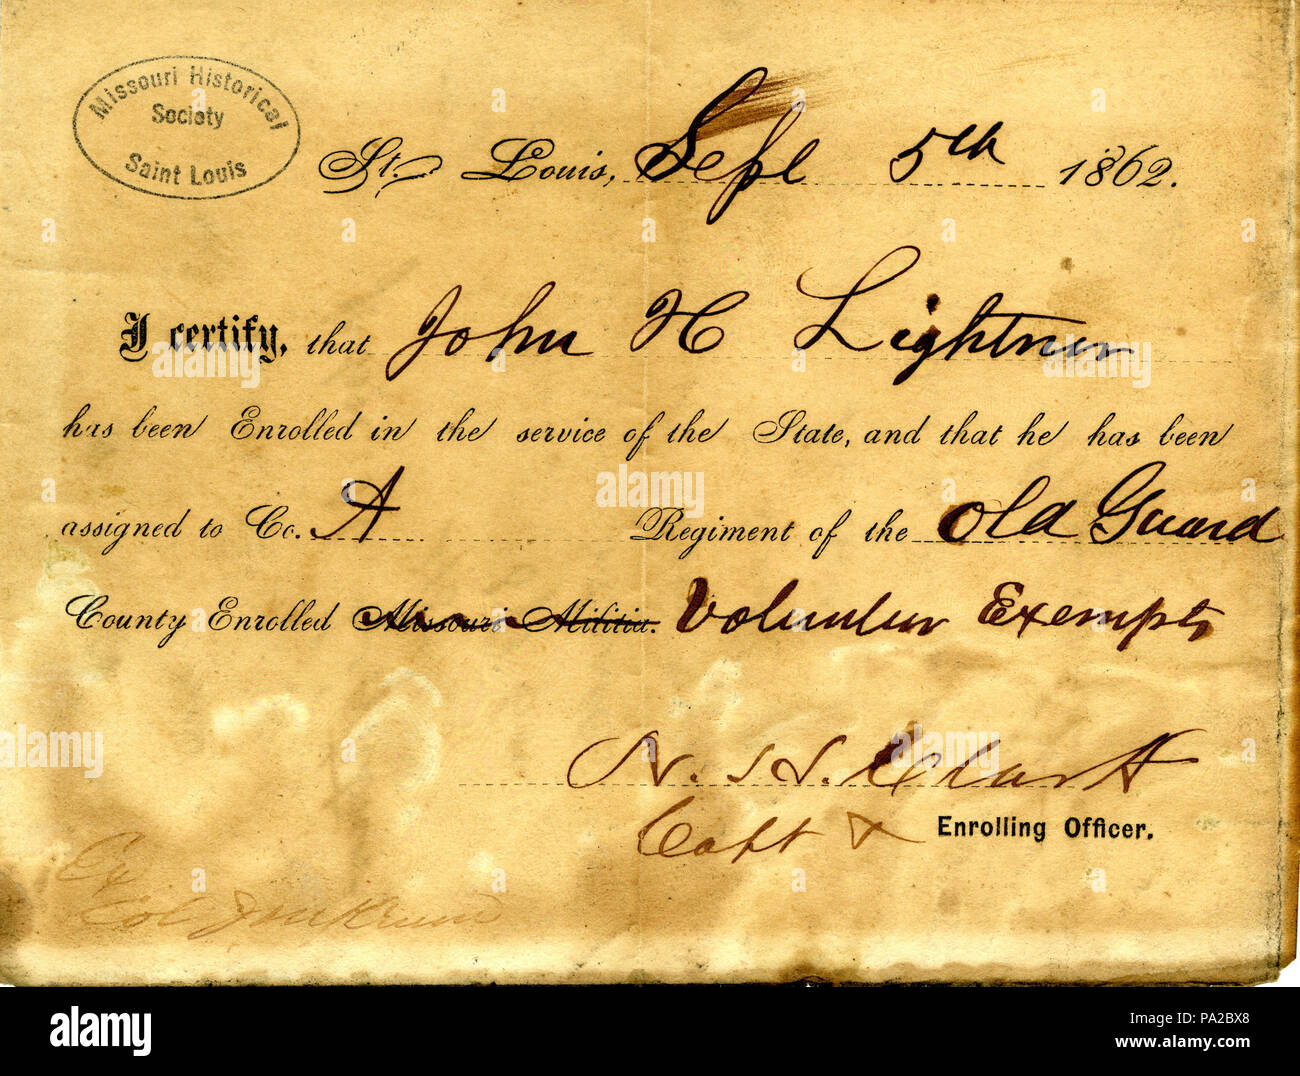 Missouri Historical
Society
Saint Louis
St. Louis, Sept 5th 1862.
I certify, that John H Lightner
has been Enrolled in the service of the State, and that he has been
assigned to Co. A Regiment of the Old Guard
County Enrolled Missouri Militia. Volunteer Exempts
Clark
Capt & Enrolling Officer.
Col
alamy
Image ID: PA2BX8
www.alamy.com